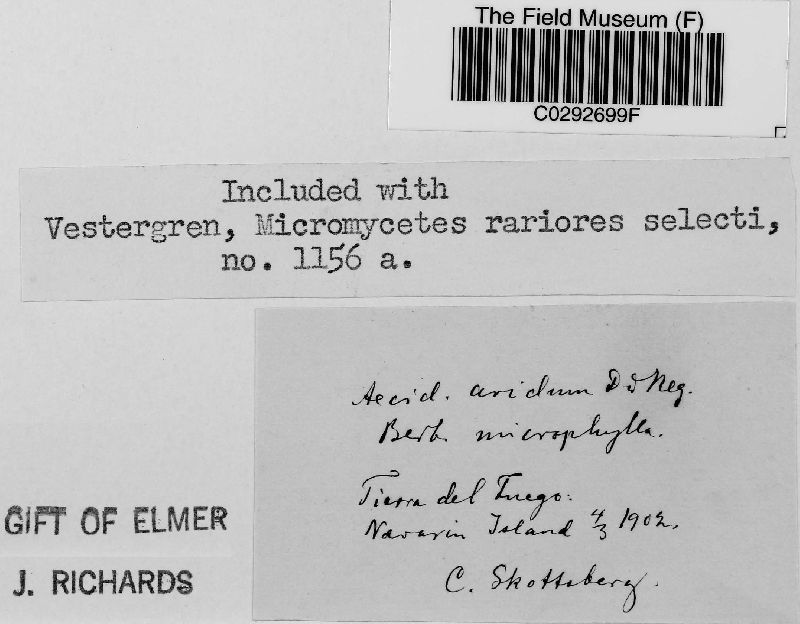 The Field Museum (F)
C0292699F
Included with
Vestergren, Micromycetes rariores selecti,
no. 1156 a.
Aecid. aridum D & Neg.
Berb. microphylla.
Tierra del Fuego:
Navarin Island 4/3 1902.
C. Skottsberg.
GIFT OF ELMER
J. RICHARDS